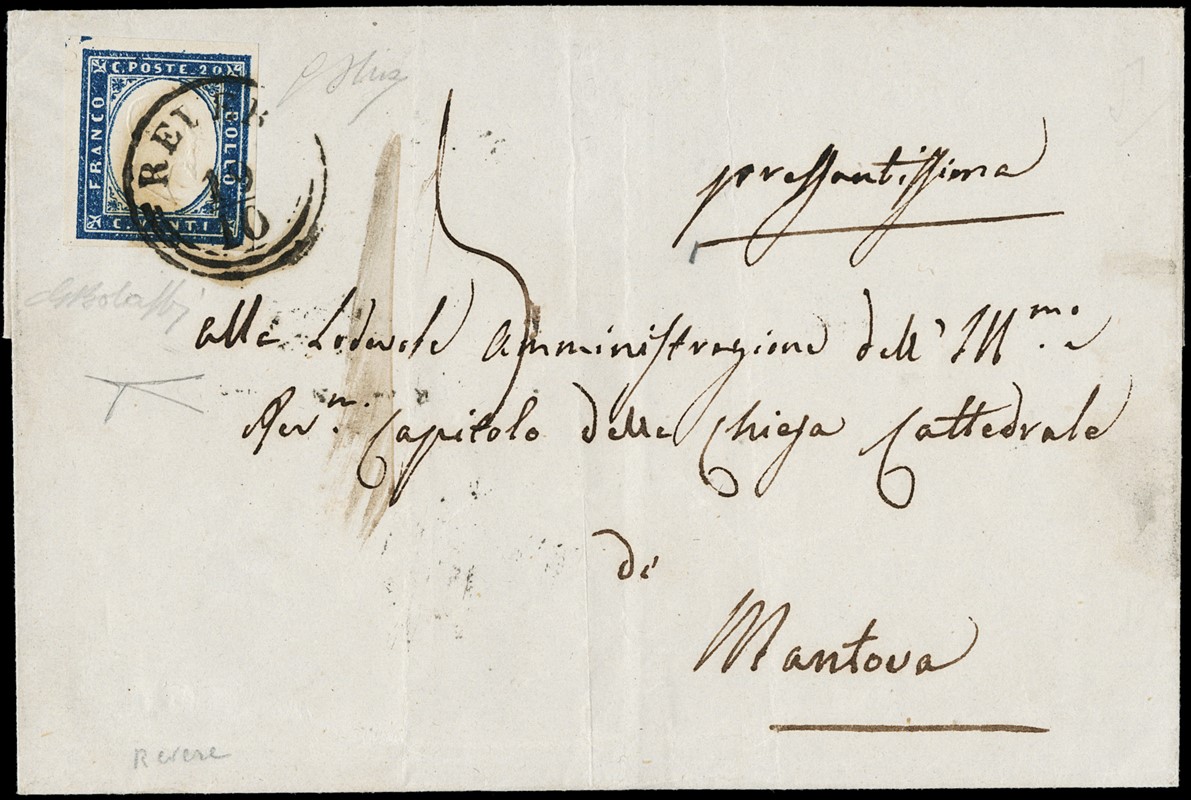 C. POSTE. 20
FRANCO
BOLLO
C. VENTI
REVERE
19
10
5
pressantissima
alla Lodevole Amministrazione dell' Ill.mo e
Rev.m. Capitolo della Chiesa Cattedrale
di
Mantova
GBolaffi
Revere